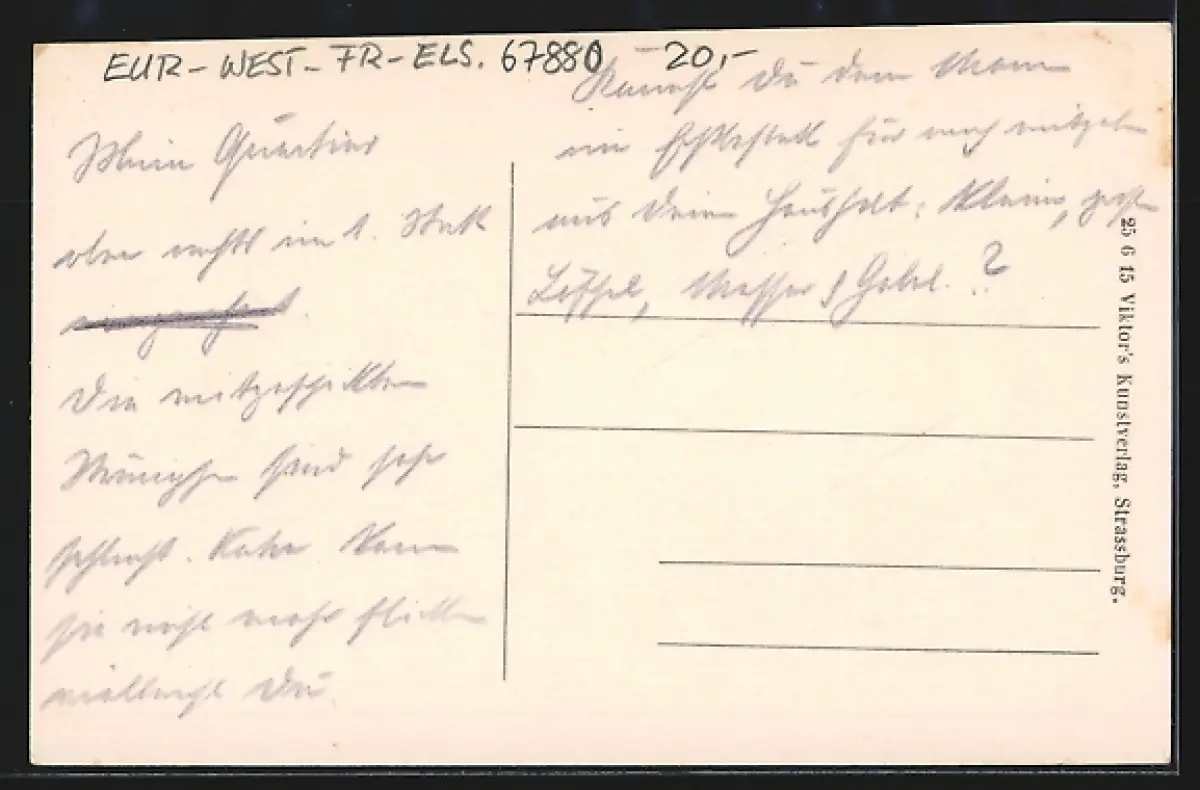 EUR-WEST-FR-ELS. 67880 -20,-
Mein Quartier
oben rechts im 1. Stock
Die mitgeschickten
Strümpfe sind sehr
schlecht. Käthe kann
sie nicht mehr flicken
vielleicht Du.
Kannst Du dem Mann
ein Essbesteck für mich mitgeben
aus Deinem Haushalt: Kleinen, großen
Löffel, Messer & Gabel. ?
25 6 15 Viktor's Kunstverlag, Strassburg.